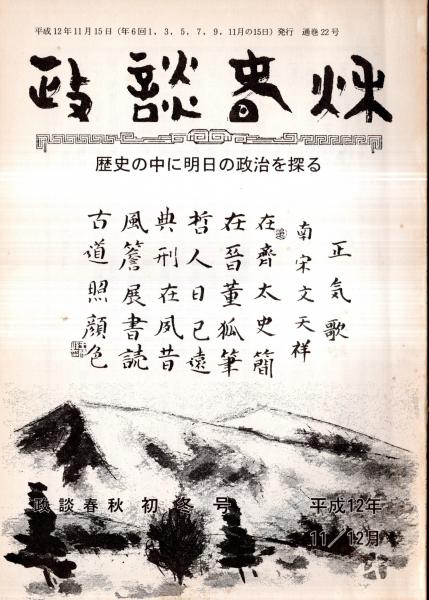 平成12年11月15日(年6回1、3、5、7、9、11月の15日)発行 通巻22号
政談春秋
歴史の中に明日の政治を探る
正気歌
南宋文天祥
在齊太史簡
在晉董狐筆
哲人日已遠
典刑在夙昔
風簷展書読
古道照顔色
政談春秋 初冬号
平成12年
11/12月